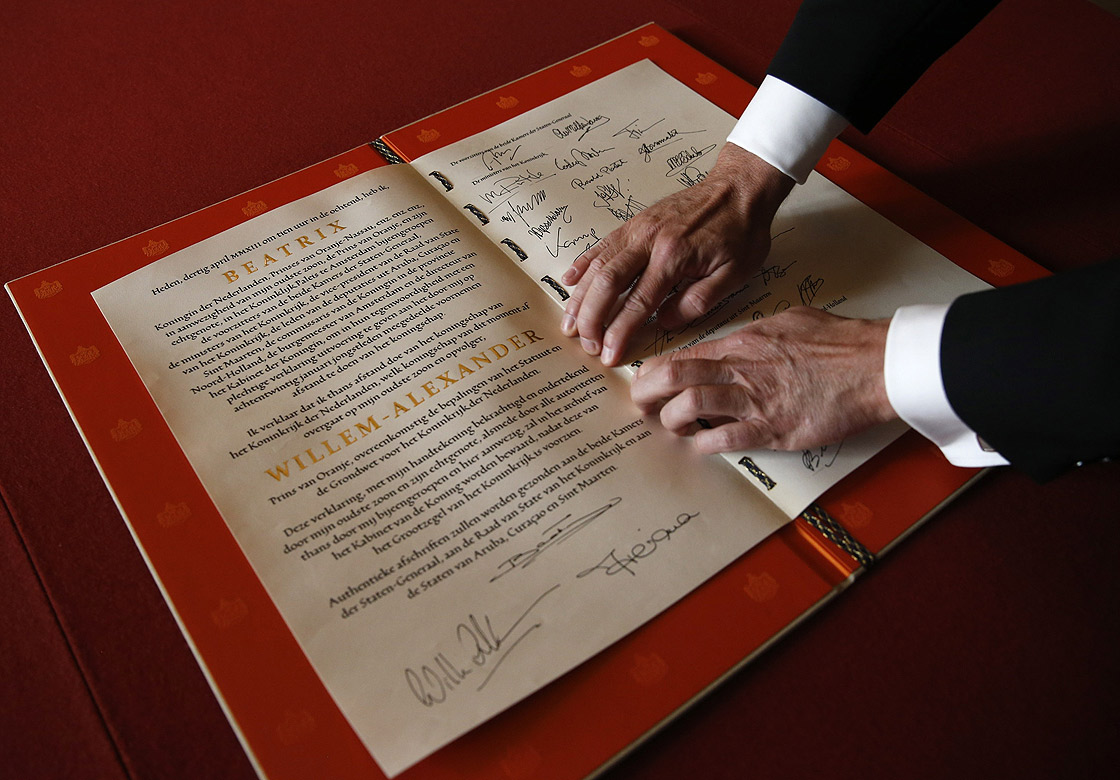 Heden, dertig april MMXIII om tien uur in de ochtend, heb ik,
BEATRIX
Koningin der Nederlanden, Prinses van Oranje-Nassau, enz, enz, enz,
in aanwezigheid van mijn oudste zoon, de Prins van Oranje, en zijn
echtgenote, in het Koninklijk Paleis te Amsterdam bijeengeroepen
de voorzitters van de beide Kamers der Staten-Generaal,
de ministers van het Koninkrijk, de vice-president en de leden van de Raad van State
van het Koninkrijk, de leden van de deputaties uit Aruba, Curaçao en
Sint Maarten, de commissaris van de Koningin in de provincie
Noord-Holland, de burgemeester van Amsterdam en de directeur van
het Kabinet der Koningin, om in hun tegenwoordigheid met een
plechtige verklaring uitvoering te geven aan het door mij op
achtentwintig januari jongstleden medegedeelde voornemen
afstand te doen van het koningschap.
Ik verklaar dat ik thans afstand doe van het koningschap van
het Koninkrijk der Nederlanden, welk koningschap van dit moment af
overgaat op mijn oudste zoon en opvolger,
WILLEM-ALEXANDER
Prins van Oranje, overeenkomstig de bepalingen van het Statuut en
de Grondwet voor het Koninkrijk der Nederlanden.
Deze verklaring, met mijn handtekening bekrachtigd en ondertekend
door mijn oudste zoon en zijn echtgenote, alsmede door alle autoriteiten
thans door mij bijeengeroepen en hier aanwezig, zal in het archief van
het Kabinet van de Koning worden bewaard, nadat deze van
het Grootzegel van het Koninkrijk is voorzien.
Authentieke afschriften zullen worden gezonden aan de beide Kamers
der Staten-Generaal, aan de Raad van State van het Koninkrijk en aan
de Staten van Aruba, Curaçao en Sint Maarten.
De voorzitters van de beide Kamers der Staten-Generaal
De ministers van het Koninkrijk
Ronald Plasterk
Kamp
van de deputatie uit Sint Maarten
Holland